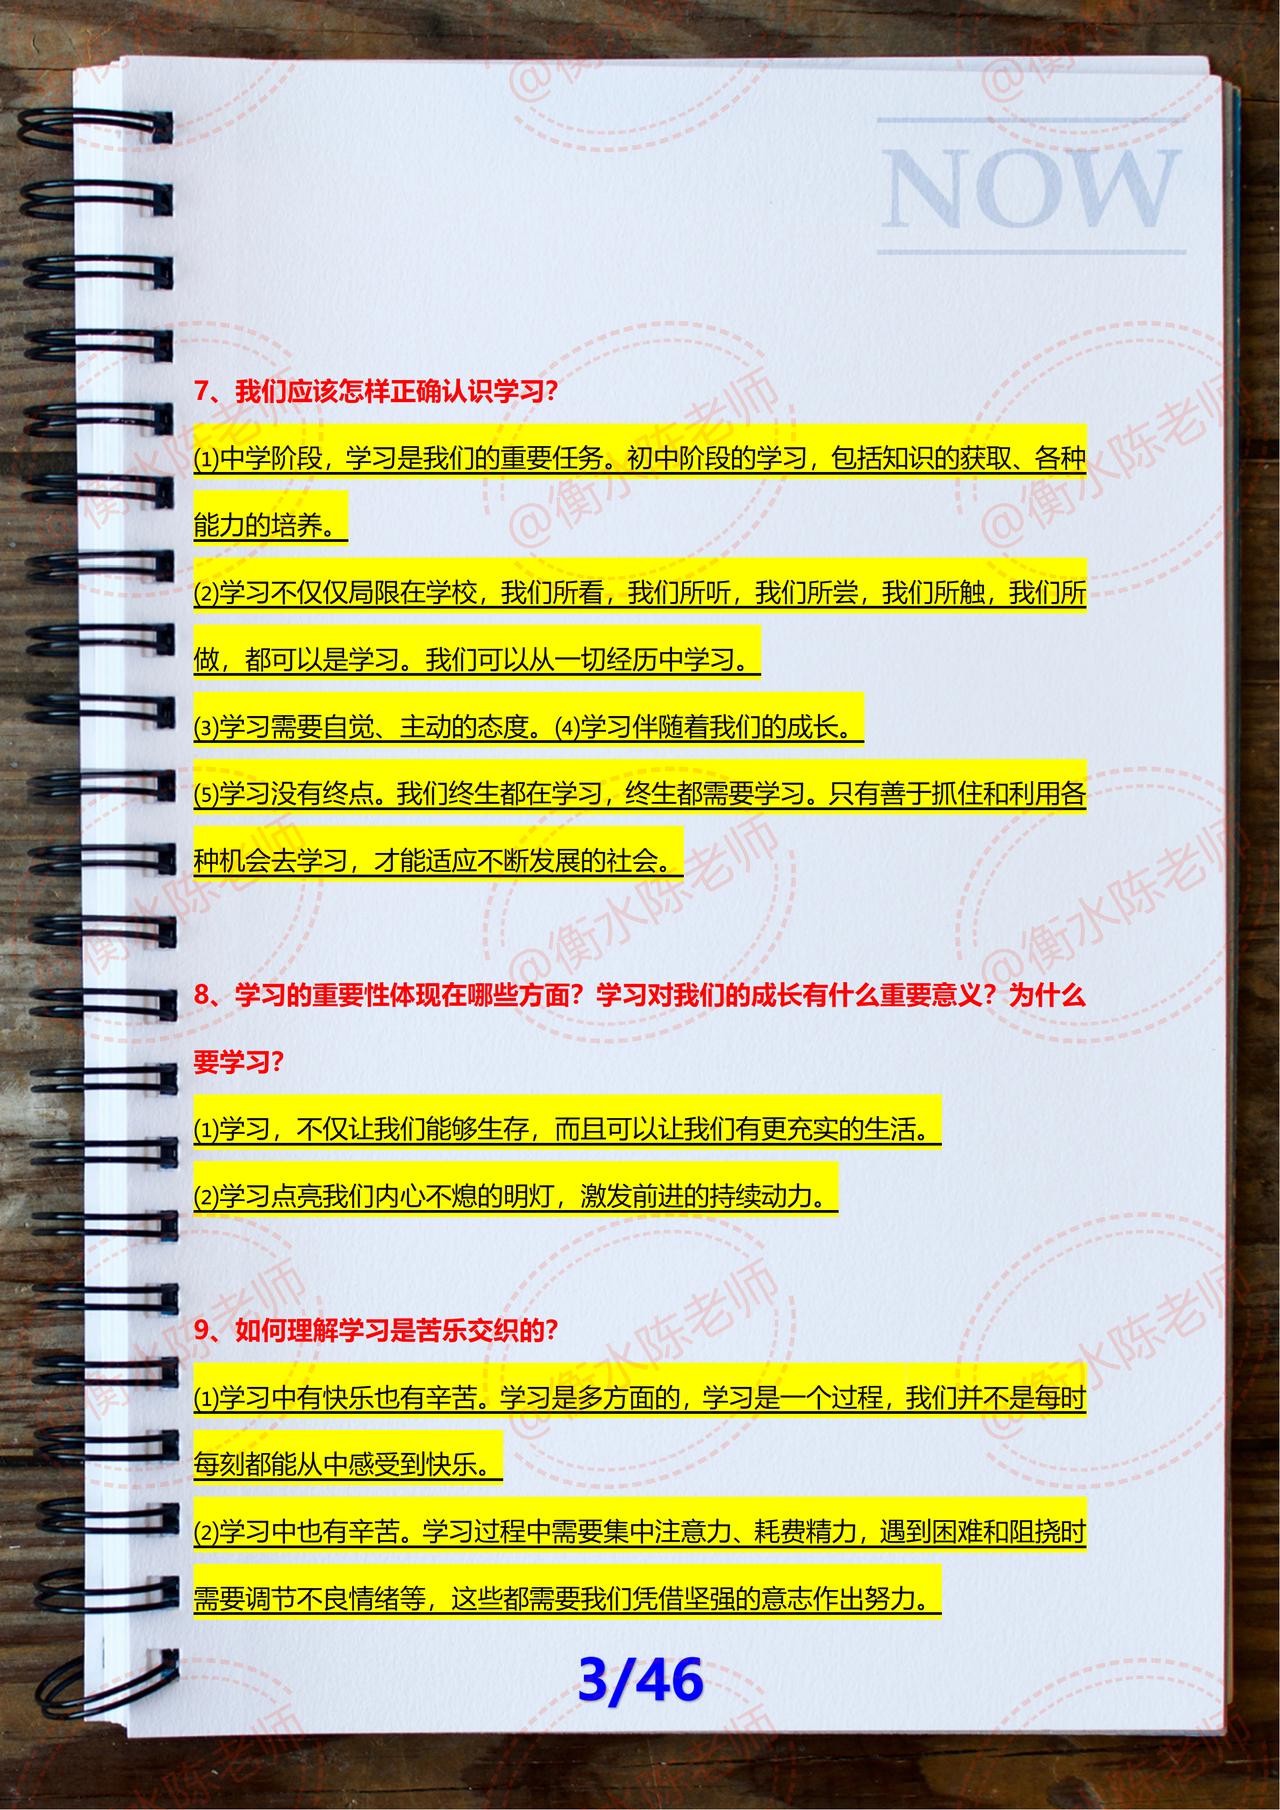 NOW
7、我们应该怎样正确认识学习？
⑴中学阶段，学习是我们的重要任务。初中阶段的学习，包括知识的获取、各种
能力的培养。
⑵学习不仅仅局限在学校，我们所看，我们所听，我们所尝，我们所触，我们所
做，都可以是学习。我们可以从一切经历中学习。
⑶学习需要自觉、主动的态度。⑷学习伴随着我们的成长。
⑸学习没有终点。我们终生都在学习，终生都需要学习。只有善于抓住和利用各
种机会去学习，才能适应不断发展的社会。
8、学习的重要性体现在哪些方面？学习对我们的成长有什么重要意义？为什么
要学习？
⑴学习，不仅让我们能够生存，而且可以让我们有更充实的生活。
⑵学习点亮我们内心不熄的明灯，激发前进的持续动力。
9、如何理解学习是苦乐交织的？
⑴学习中有快乐也有辛苦。学习是多方面的，学习是一个过程，我们并不是每时
每刻都能从中感受到快乐。
⑵学习中也有辛苦。学习过程中需要集中注意力、耗费精力，遇到困难和阻挠时
需要调节不良情绪等，这些都需要我们凭借坚强的意志作出努力。
3/46
@衡水陈老师
@衡水陈老师
@衡水陈老师
@衡水陈老师
@衡水陈老师
@衡水陈老师
@衡水陈老师
@衡水陈老师
@衡水陈老师